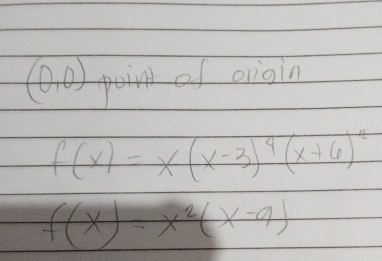 (0,0) point of origin
f(x) = x(x-3)⁴(x+6)²
f(x) = x²(x-9)